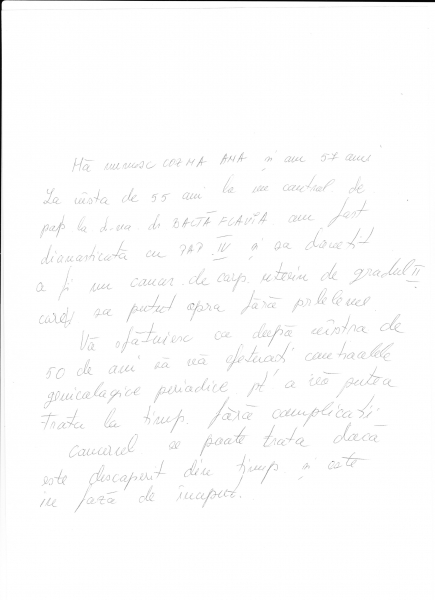 Mă numesc COZMA ANA și am 57 ani
La vîsta de 55 ani la un control de
pap la d-na dr BALTĂ FLAVIA am fost
dianosticata cu PAP IV și sa dovetit
a fi un cancer de corp uterin de gradul II
care sa putut opra fără prbleleme
Vă sfătuiesc ca după vîstra de
50 de ani să vă efctuați controalele
genicalogice periadice pt a vă putea
trata la timp fără complicatii
Cancerul se poate trata dacă
este descaperit din timp și este
in fază de început.